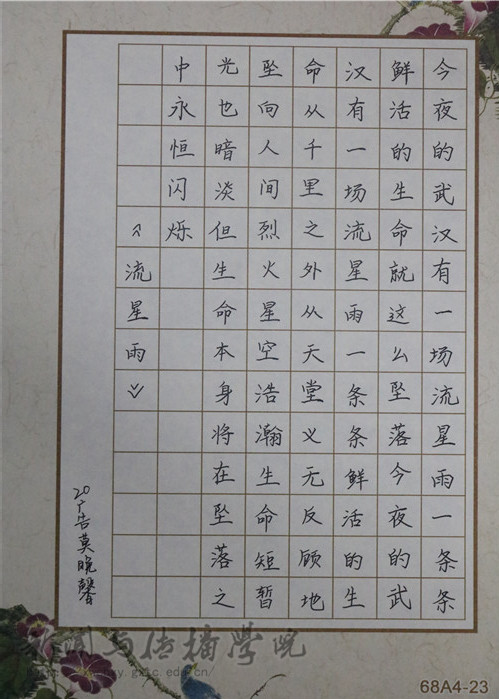 今夜的武汉有一场流星雨一条条
鲜活的生命就这么坠落今夜的武
汉有一场流星雨一条条鲜活的生
命从千里之外从天堂义无反顾地
坠向人间烈火星空浩瀚生命短暂
光也暗淡但生命本身将在坠落之
中永恒闪烁
《流星雨》
20广告莫晓馨
新闻与传播学院
68A4-23